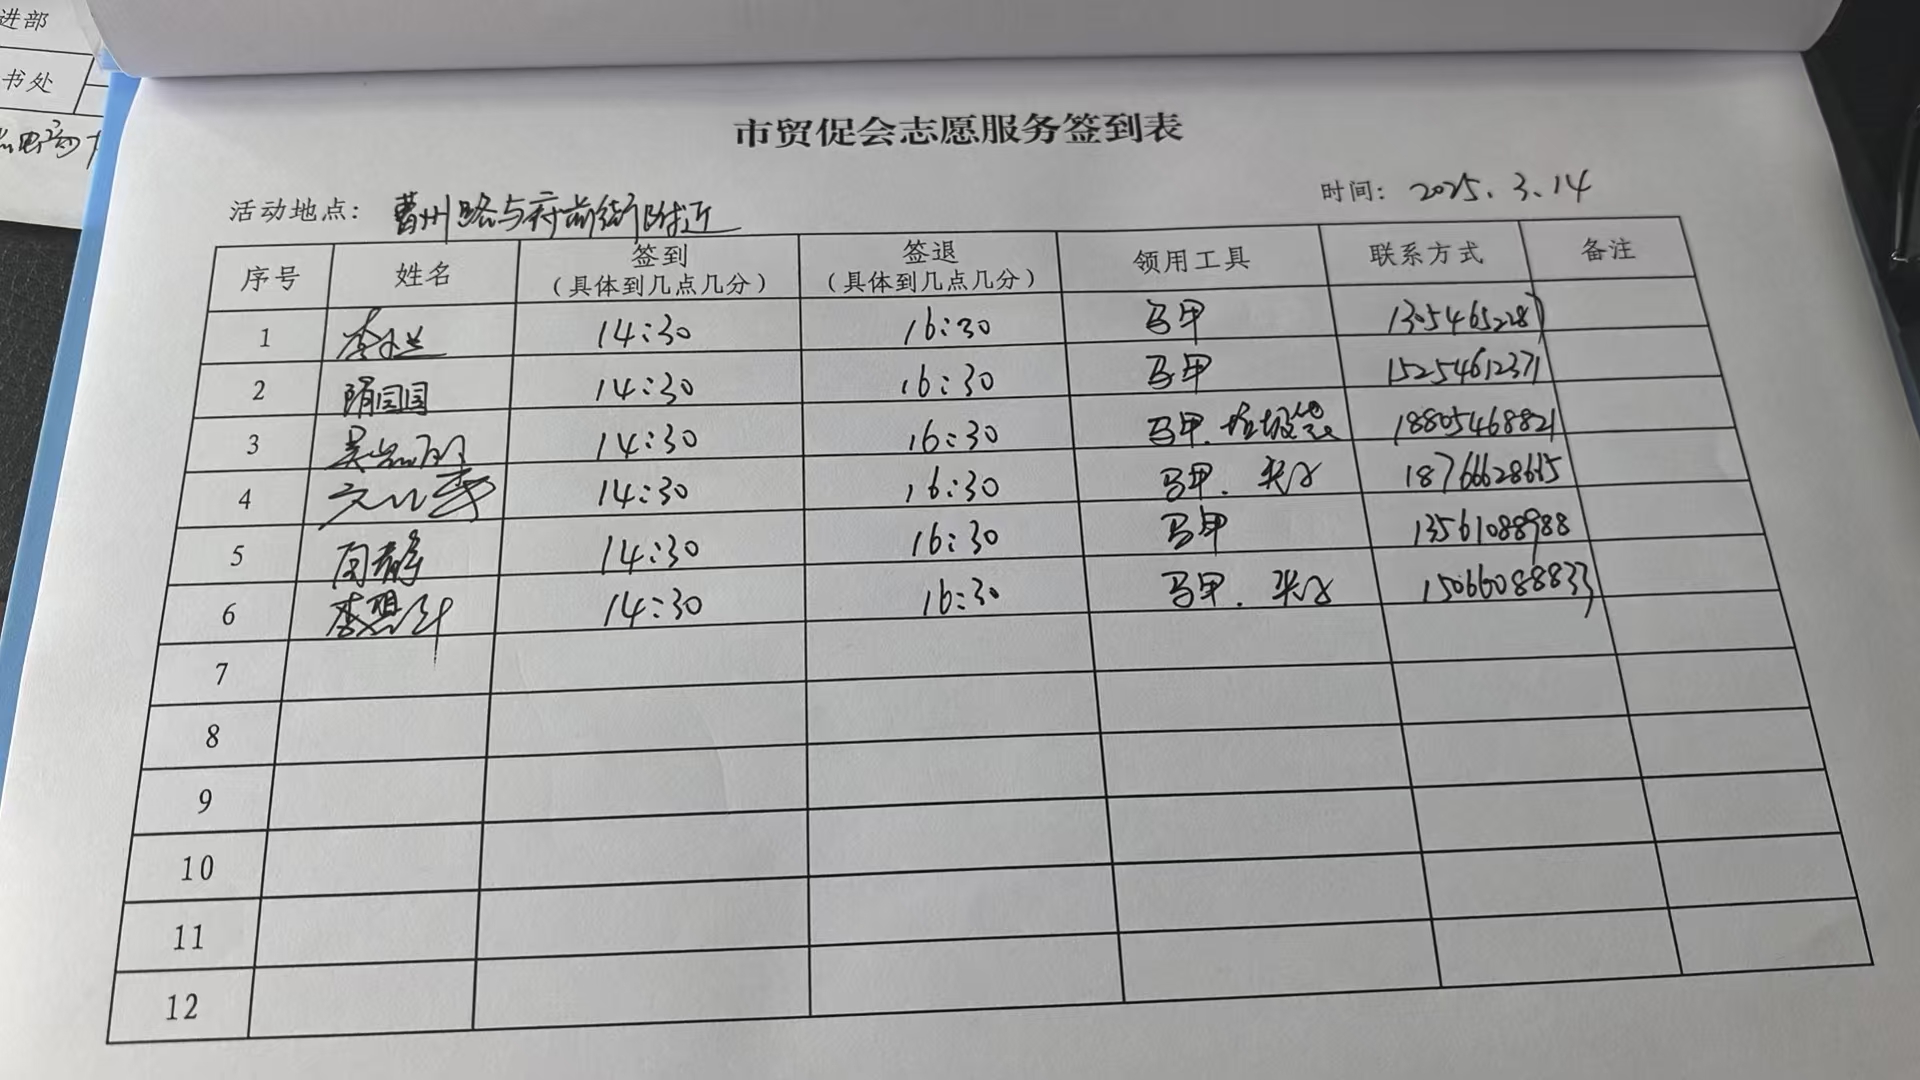 进部
书处
市贸促会志愿服务签到表
时间: 2025.3.14
活动地点: 曹州路与府前街附近
序号 姓名 签到 (具体到几点几分) 签退 (具体到几点几分) 领用工具 联系方式 备注
1 14:30 16:30 马甲
2 隋国国 14:30 16:30 马甲 15254612371
3 14:30 16:30 马甲、垃圾袋 18805468821
4 14:30 16:30 马甲、夹子
5 周静 14:30 16:30 马甲 13561088988
6 14:30 16:30 马甲、夹子 15066088833
7
8
9
10
11
12